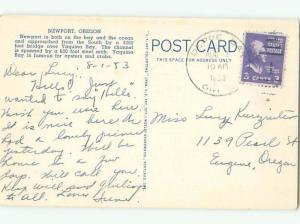 NEWPORT, OREGON
Newport is both on the bay and the ocean
and approached from the South by a 3260
foot bridge over Yaquina Bay. The channel
is spanned by a 600 foot steel arch. Yaquina
Bay is famous for oysters and crabs.
8-1-53
Dear Lucy,
"Hello!" Just
wanted to say "Hello.
Wish you were here.
It is nice here, 
had a lovely picnic
yesterday. Will be
home in a few
days. Will call you.
to all. Love
POST CARD
THIS SPACE FOR ADDRESS ONLY
10 AM
1953
3¢
Miss Lucy
1139 Pearl St
Eugene, Oregon